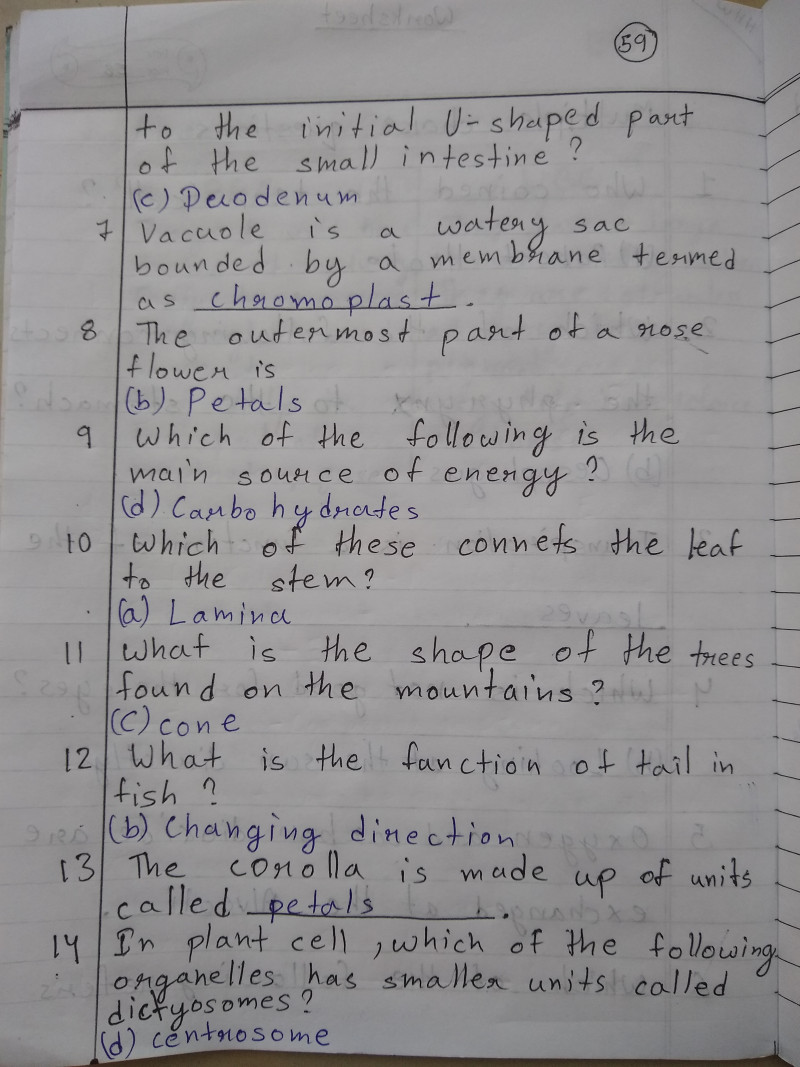 59
to the initial U-shaped part
of the small intestine ?
(c) Deuodenum
7 Vacuole is a watery sac
bounded by a membrane termed
as chromoplast.
8 The outermost part of a rose
flower is
(b) Petals
9 Which of the following is the
main source of energy ?
(d) Carbohydrates
10 Which of these connets the leaf
to the stem?
(a) Lamina
11 What is the shape of the trees
found on the mountains ?
(C) cone
12 What is the function of tail in
fish ?
(b) Changing direction
13 The corolla is made up of units
called petals.
14 In plant cell , which of the following
organelles has smaller units called
dictyosomes ?
(d) centrosome